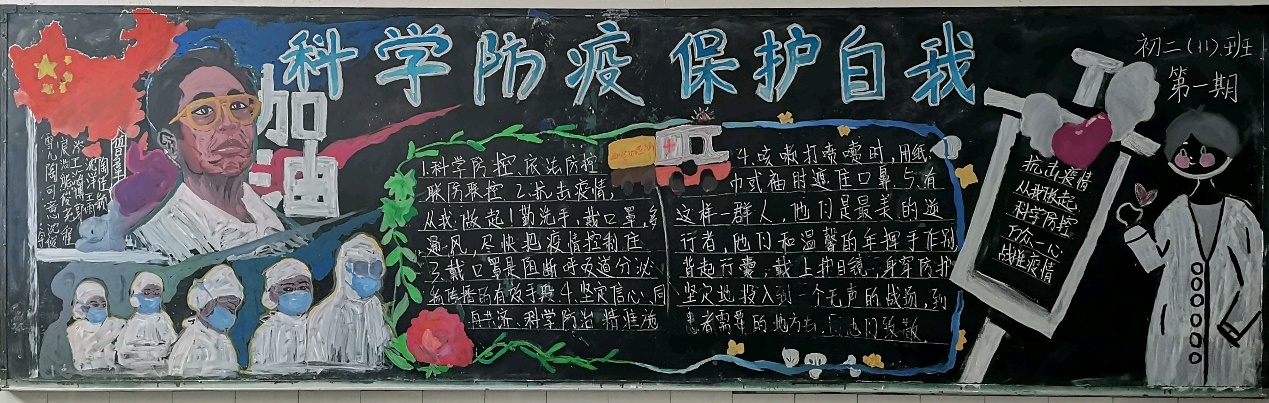 科学防疫 保护自我
加油
初二（11）班
第一期
1.科学防控、依法防控
联防联控 2.抗击疫情,
从我做起！勤洗手,戴口罩,多
通风,尽快把疫情控制住
3.戴口罩是阻断呼吸道分泌
物传播的有效手段 4.坚定信心、同
舟共济、科学防治 精准施
4.咳嗽打喷嚏时,用纸
巾或袖肘遮住口鼻 5.有
这样一群人,他们是最美的逆
行者,他们和温馨的年挥手作别
背起行囊,戴上护目镜,身穿防护
坚定地投入到一个无声的战场,到
患者需要的地方去,他们致敬
抗击疫情
从我做起
科学防控
万众一心
战胜疫情